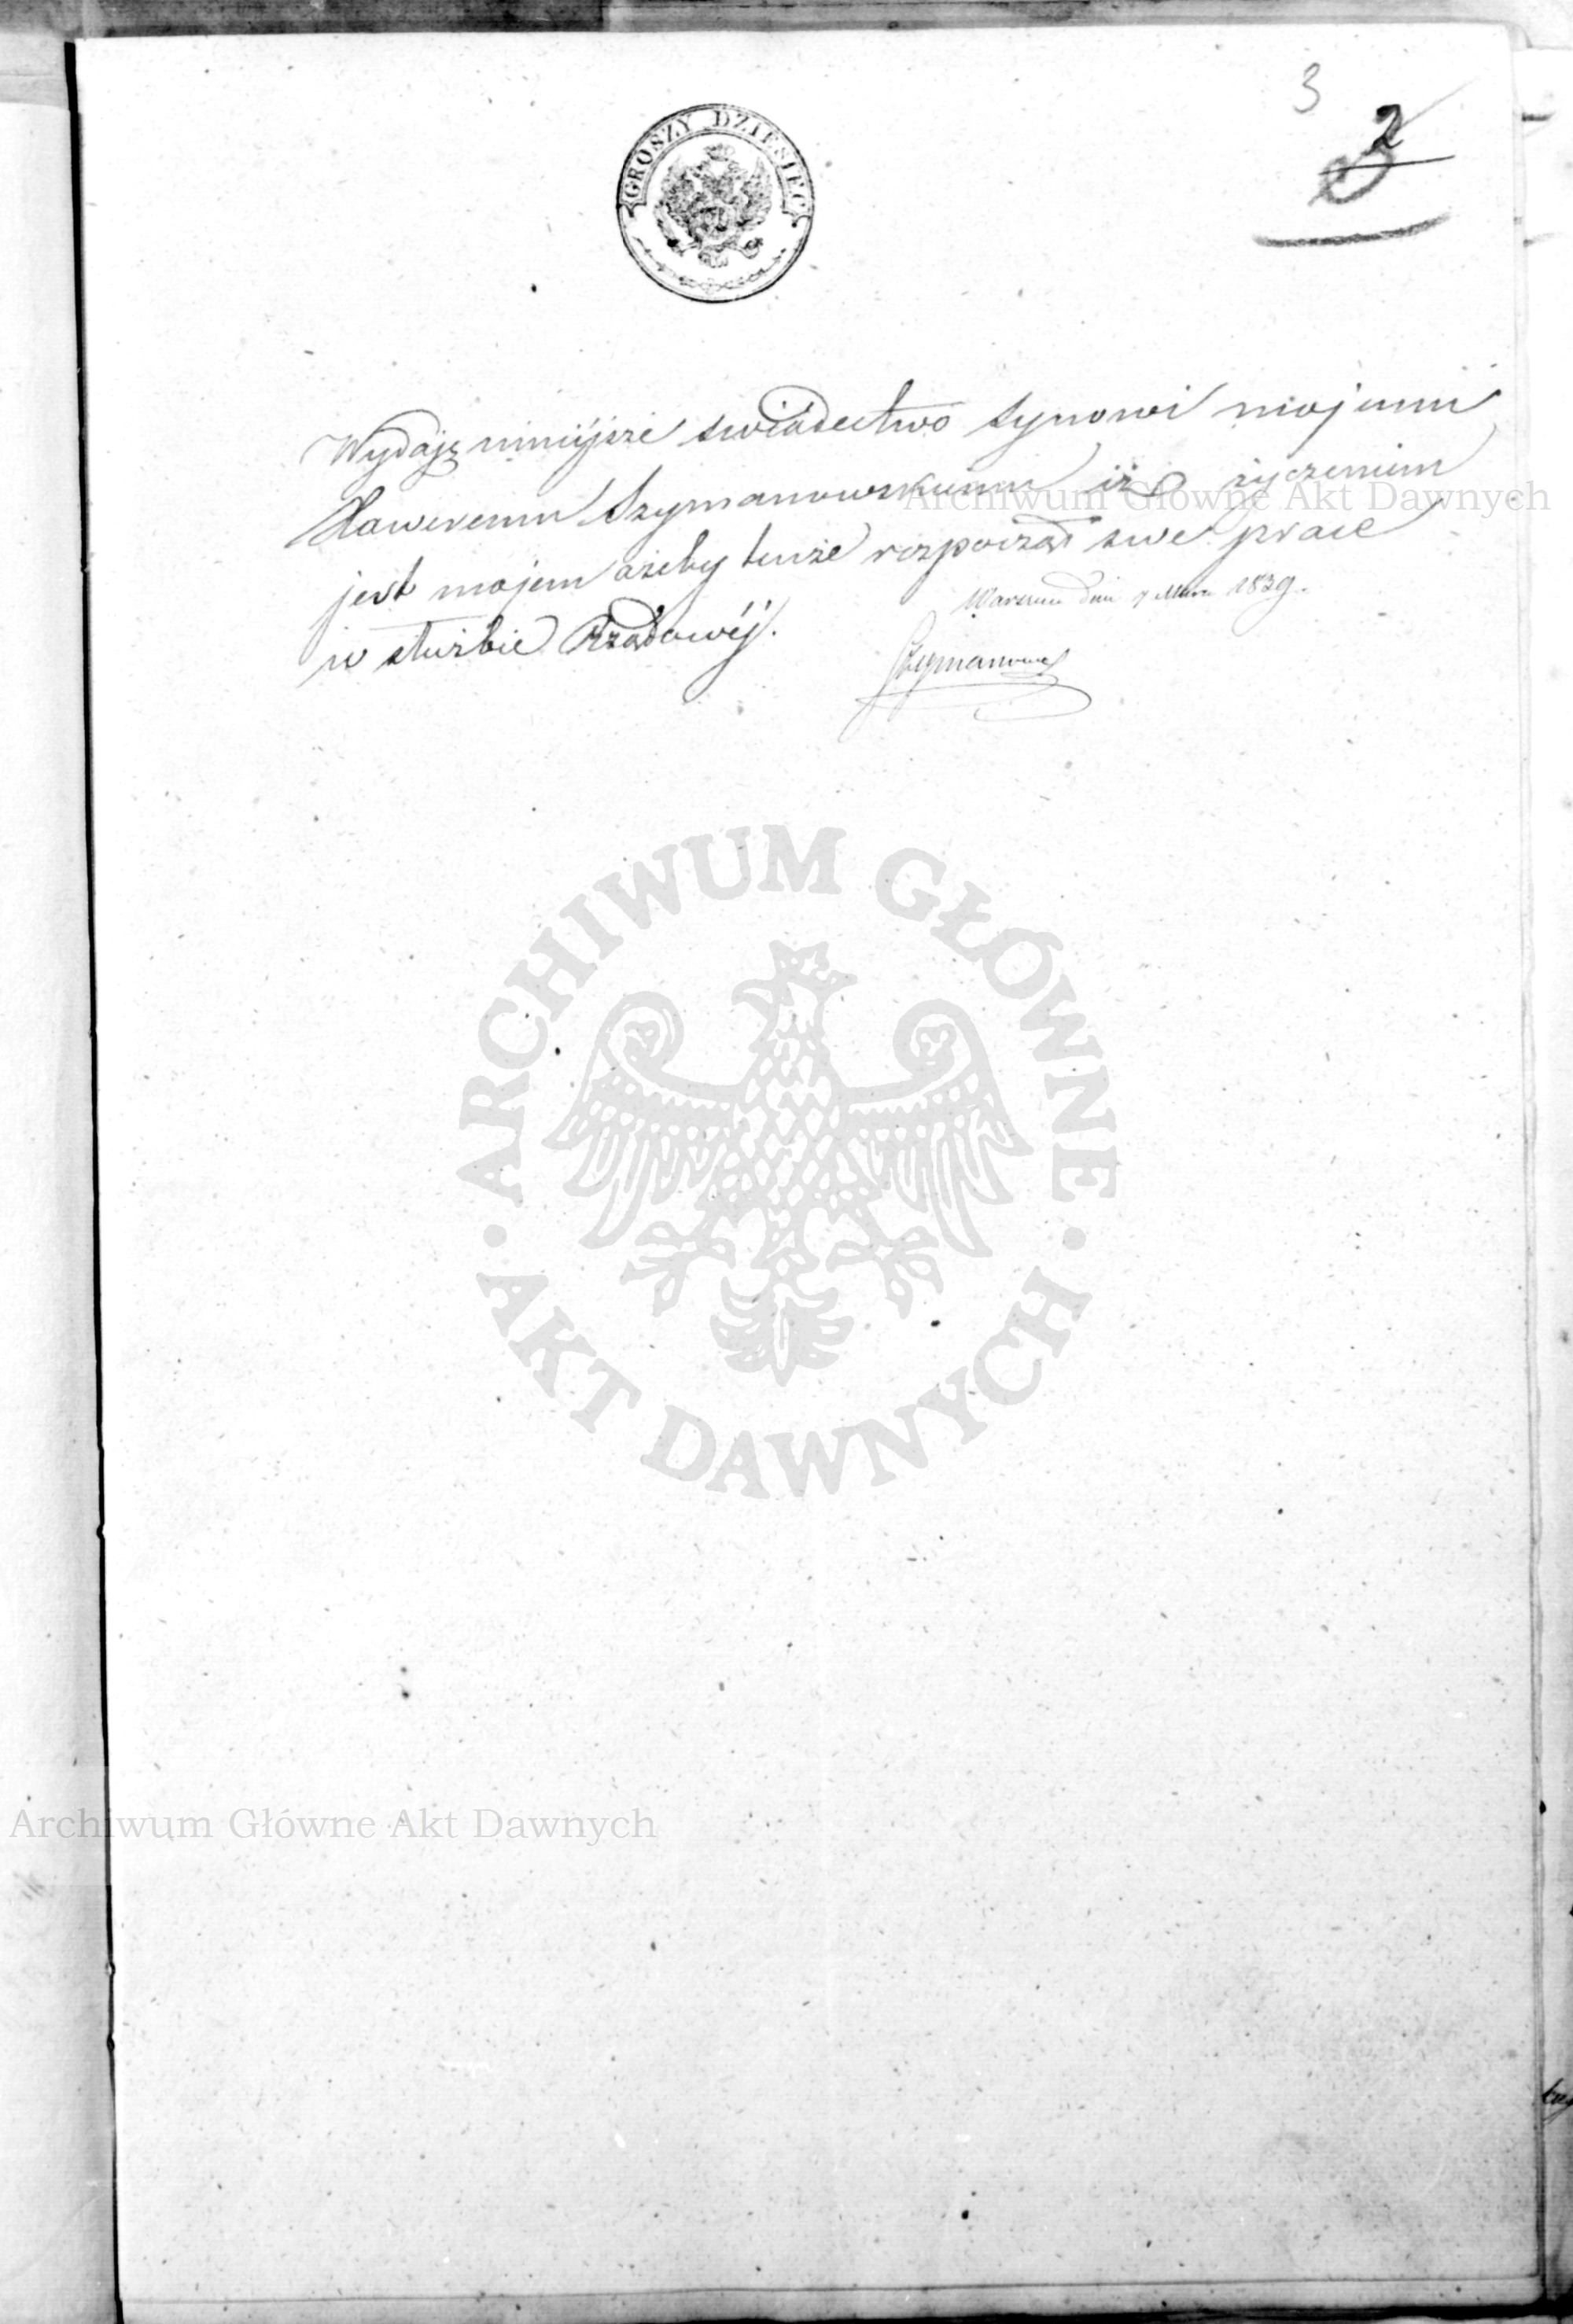 3
2
GROSZY DZIESIĘĆ
Wydaję ninieÿsze swiadectwo synowi mojemu
Xaweremu Szymanowskiemu iż życzeniem
Archiwum Główne Akt Dawnych
jest mojem ażeby tenże rozpoczął swe prace
w służbie Rządowéj.
Warszawa dnia 1839.
Szymanowski
ARCHIWUM GŁÓWNE
AKT DAWNYCH
Archiwum Główne Akt Dawnych